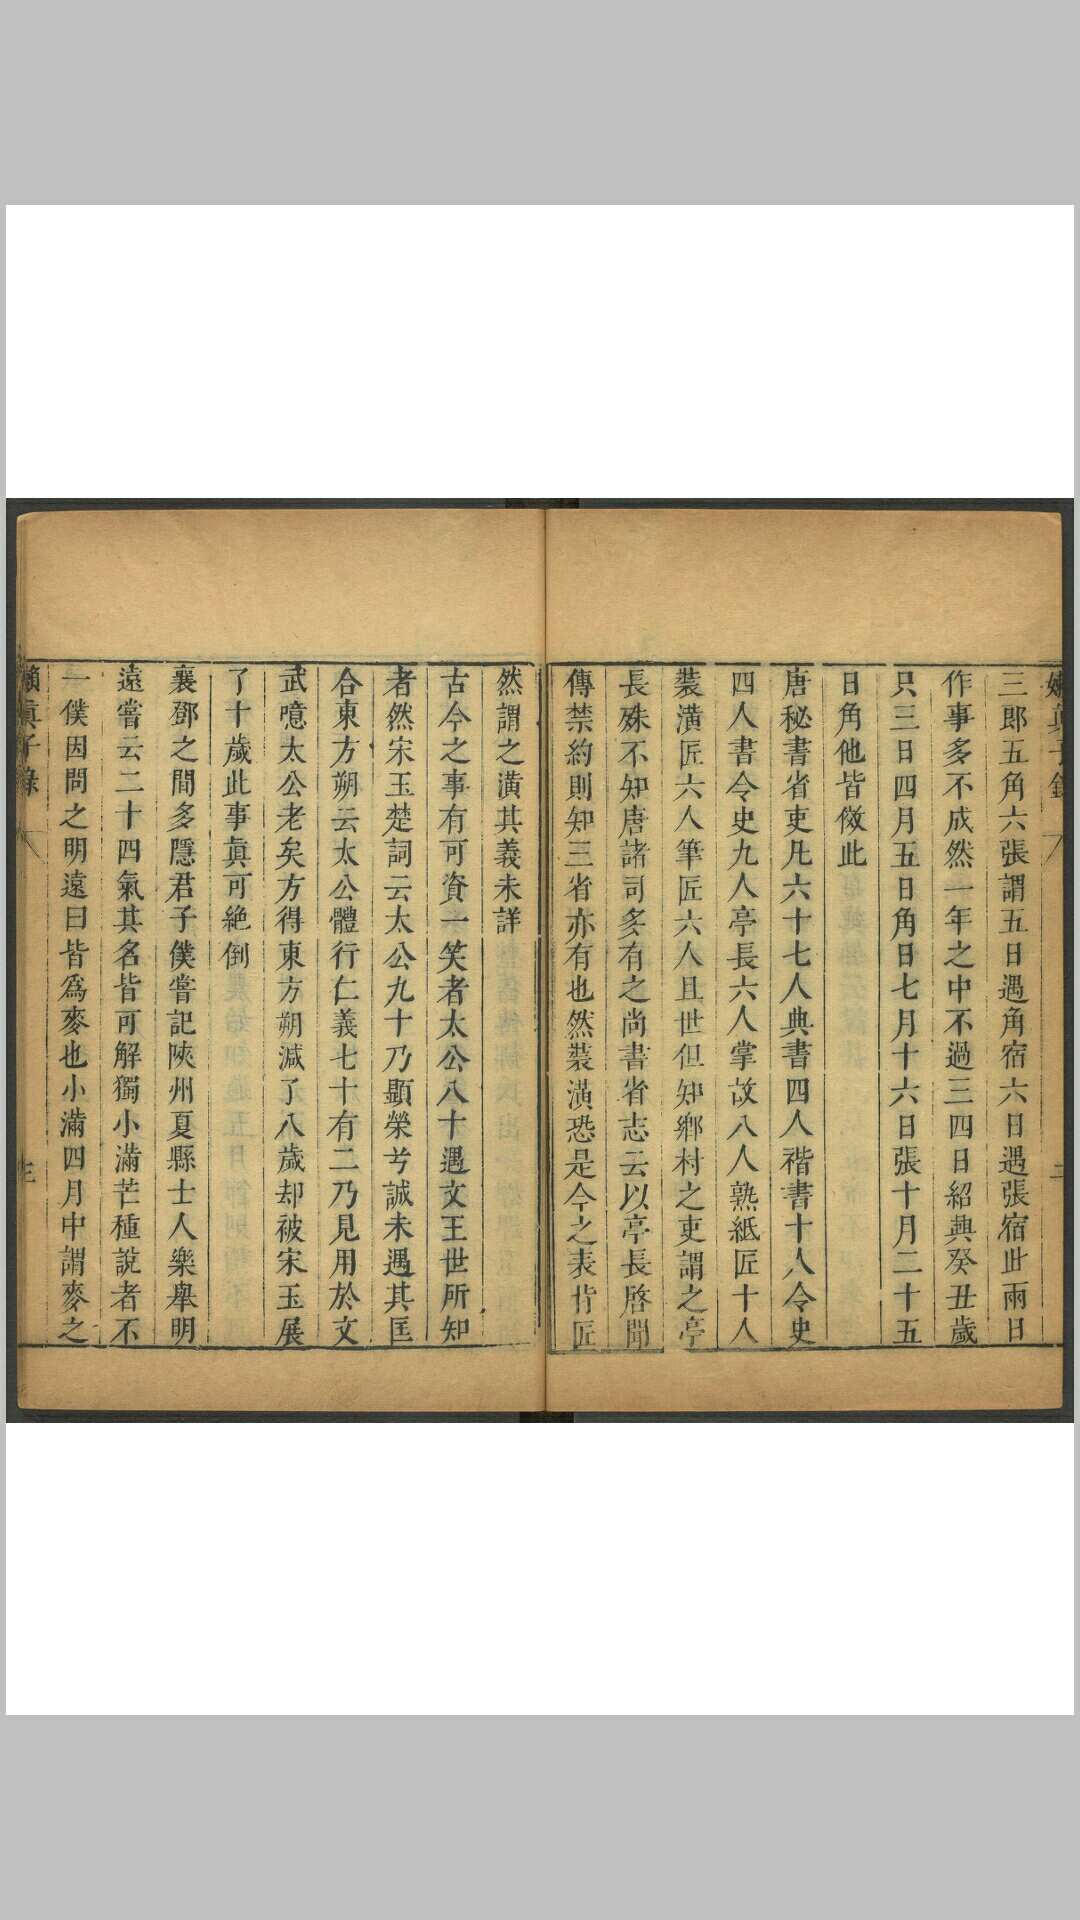 三郎五角六張謂五日遇角宿六日遇張宿此兩日
作事多不成然一年之中不過三四日紹興癸丑歲
只三日四月五日角日七月十六日張十月二十五
日角他皆倣此
唐秘書省吏凡六十七人典書四人楷書十人令史
四人書令史九人亭長六人掌故八人熟紙匠十人
裝潢匠六人筆匠六人且世但知鄉村之吏謂之亭
長殊不知唐諸司多有之尚書省志云以亭長啓閉
傳禁約則知三省亦有也然裝潢恐是今之表背匠
然謂之潢其義未詳
古今之事有可資一笑者太公八十遇文王世所知
者然宋玉楚詞云太公九十乃顯榮兮誠未遇其匡
合東方朔云太公體行仁義七十有二乃見用於文
武噫太公老矣方得東方朔減了八歲却被宋玉展
了十歲此事眞可絶倒
襄鄧之間多隱君子僕嘗記陝州夏縣士人樂舉明
遠嘗云二十四氣其名皆可解獨小滿芒種說者不
一僕因問之明遠曰皆爲麥也小滿四月中謂麥之
懶眞子錄